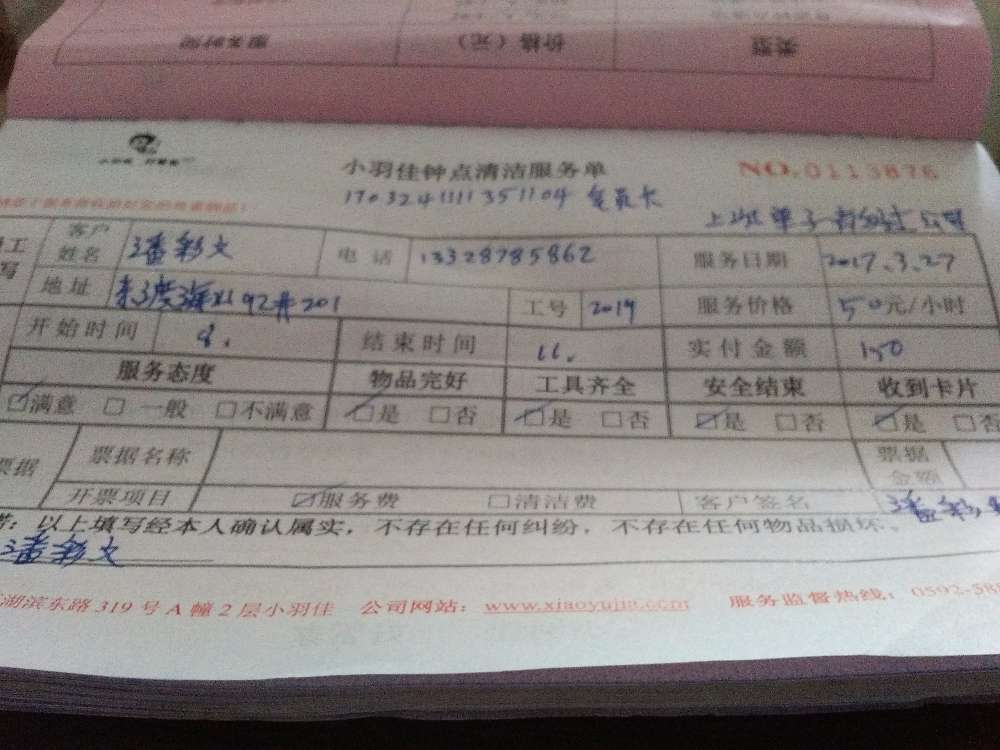 服务时间 价格（元） 类型
小羽佳钟点清洁服务单 NO.0113876
1703241111351104 会员卡
上班单子 公司
客户姓名 潘彩文 电话 13328785862 服务日期 2017.3.27
地址 92井201 工号 2019 服务价格 50元/小时
开始时间 8. 结束时间 11. 实付金额 150
服务态度 物品完好 工具齐全 安全结束 收到卡片
☑满意 □一般 □不满意 ☑是 □否 ☑是 □否 ☑是 □否 ☑是 □否
票据 票据名称 票据金额
开票项目 ☑服务费 □清洁费 客户签名 潘彩
：以上填写经本人确认属实，不存在任何纠纷，不存在任何物品损坏。
潘彩文
湖滨东路319号A幢2层小羽佳 公司网站：www.xiaoyujia.com 服务监督热线：0592-58